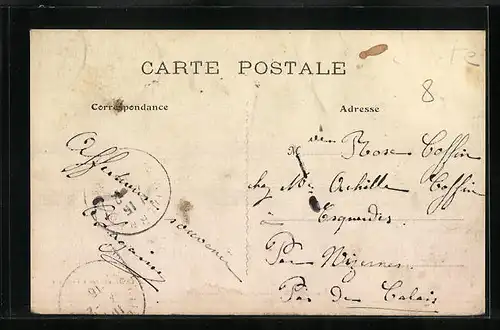 CARTE POSTALE
Correspondance
Adresse
8
souvenir
Melle Rose Coffin
chez Mr Achille Coffin
à Esquerdes
Par Wizernes
Pas de Calais
15